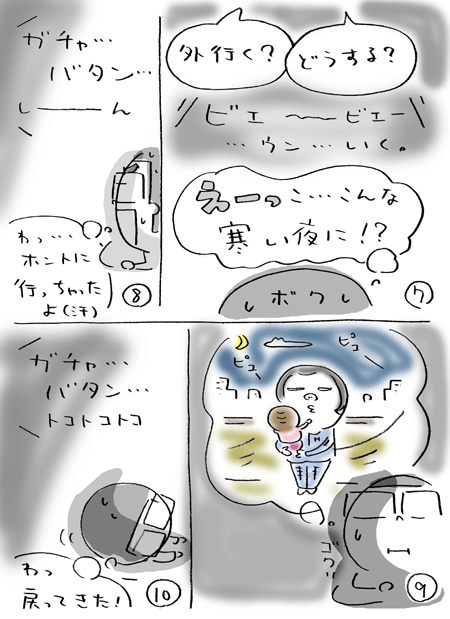 外行く?
どうする?
ビエ〜〜ビエー
…ウン…いく。
えーっこ…こんな
寒い夜に!?
ボク
⑦
ガチャ…
バタン…
しーーん
わっ…
ホントに
行っちゃった
よ(汗)
⑧
ピュー
ピュー
ゴクッ
⑨
ガチャ…
バタン…
トコトコトコ
わっ
戻ってきた!
⑩